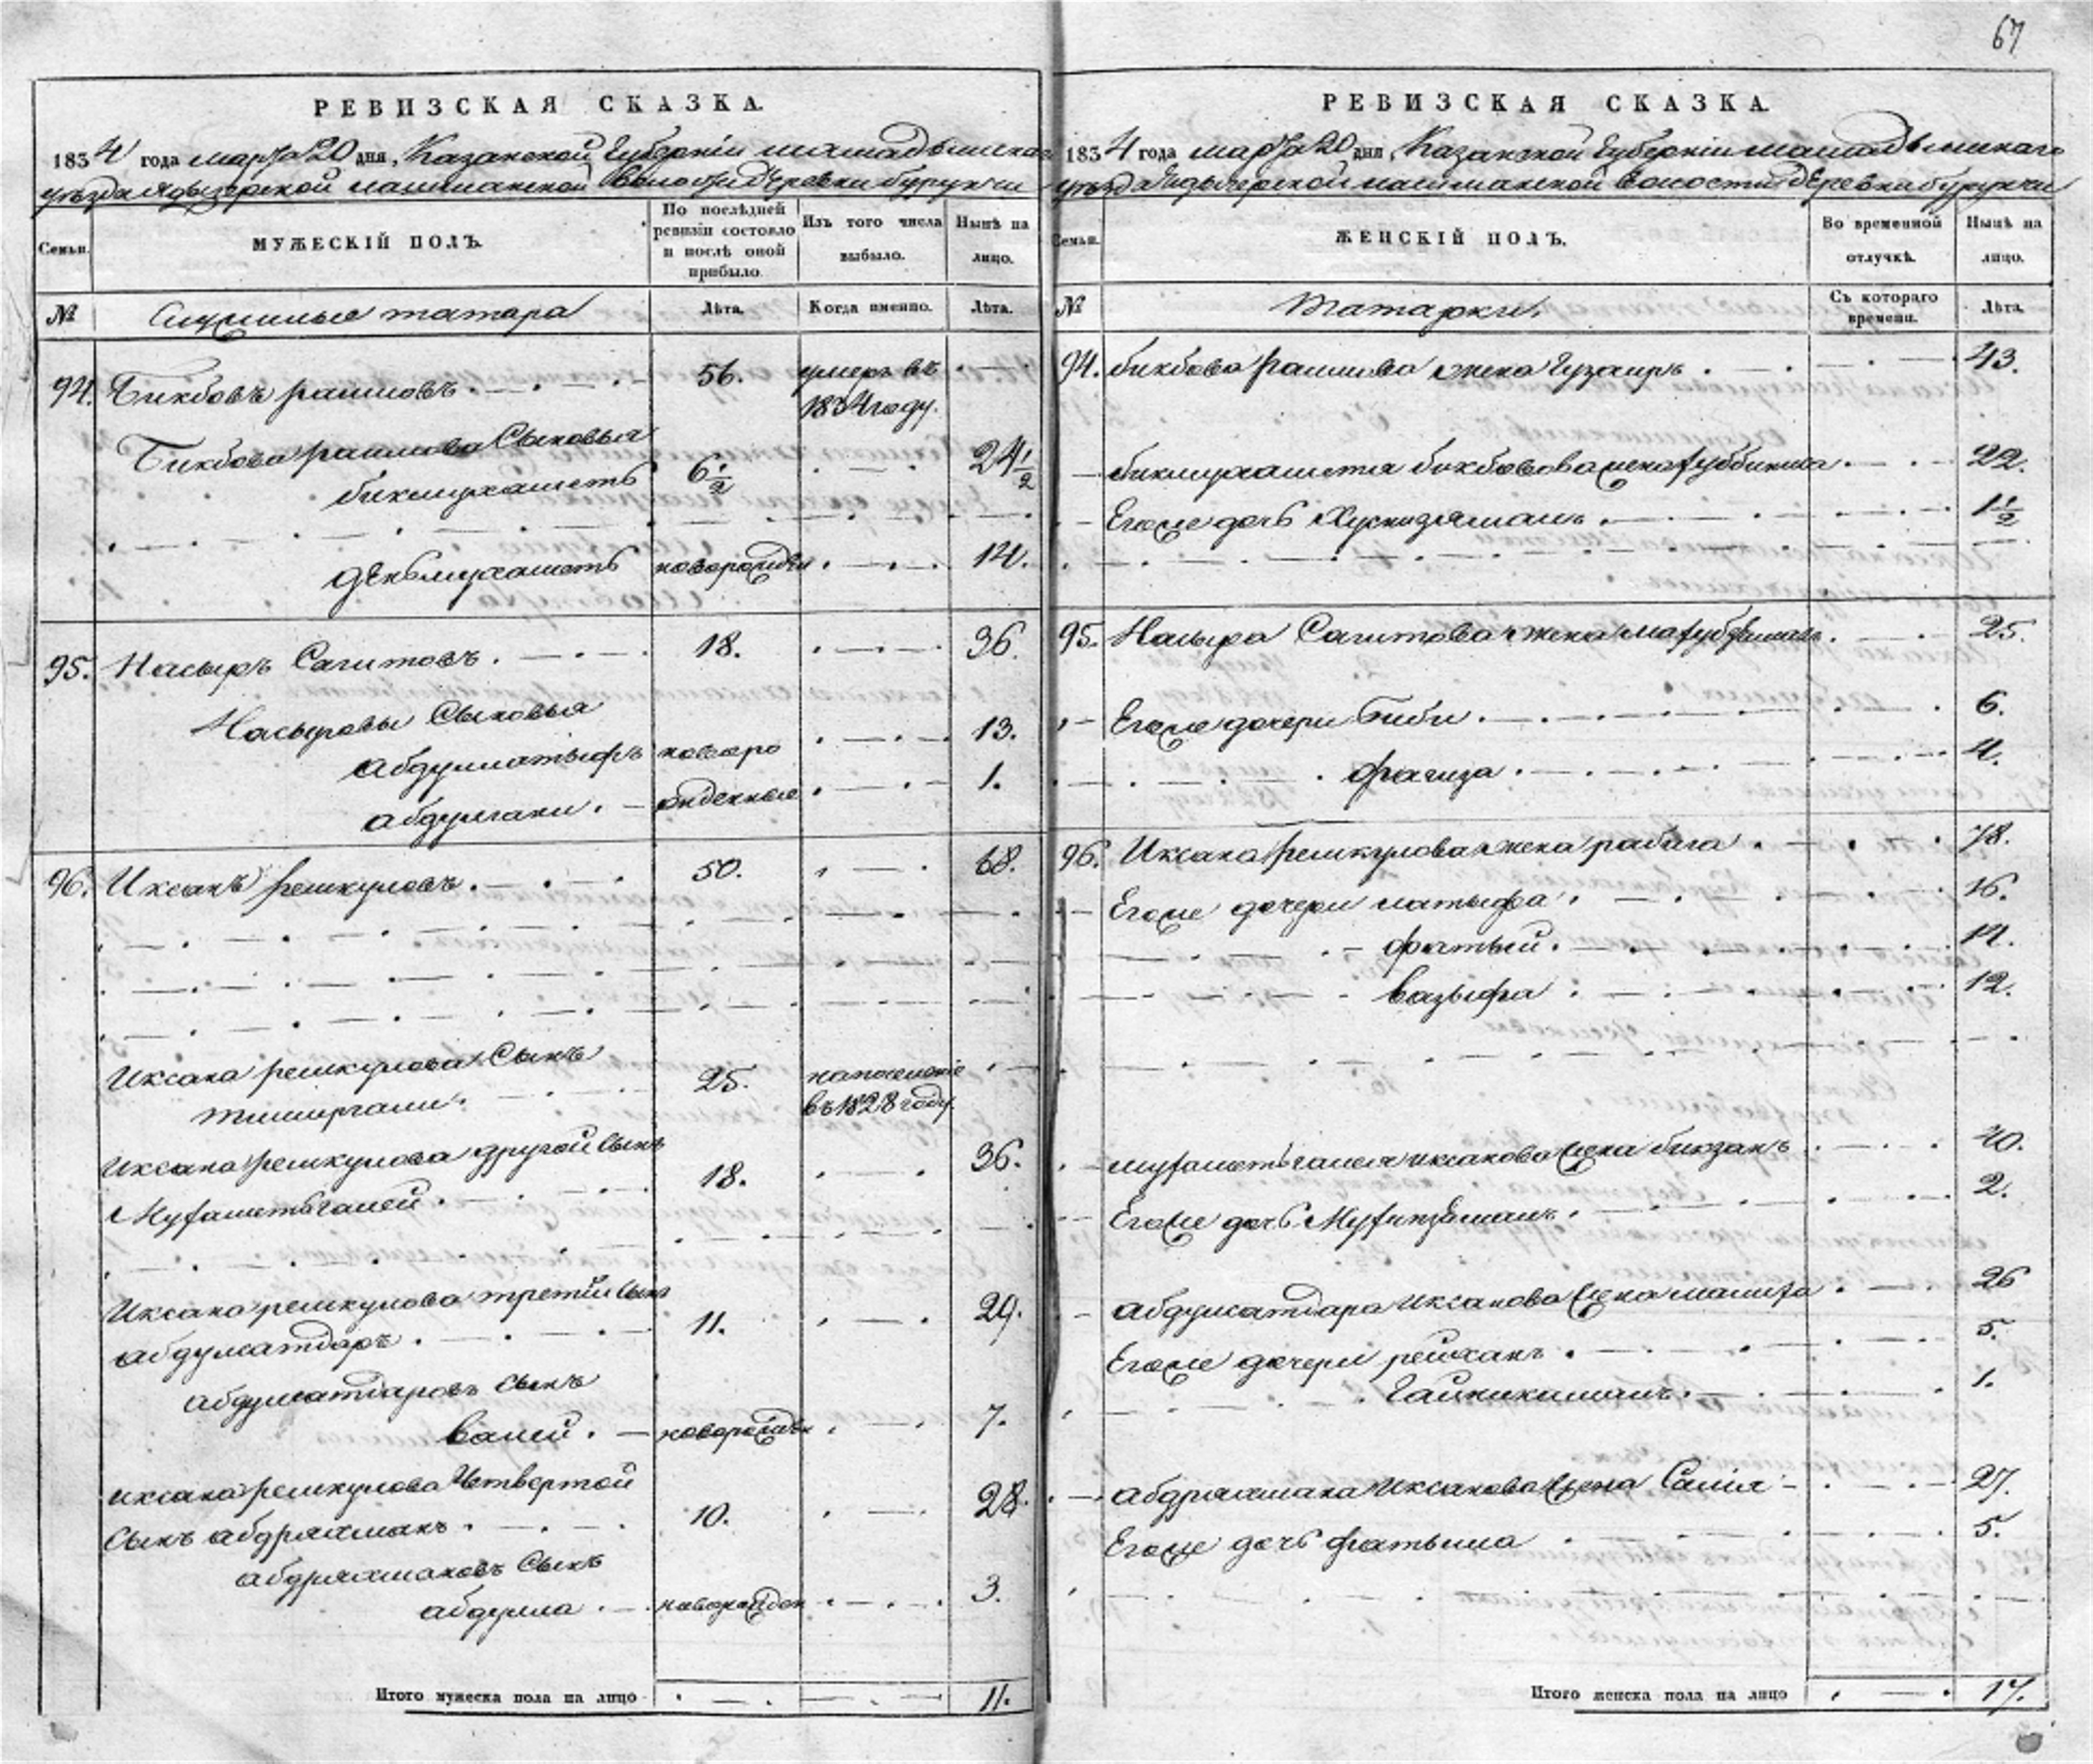 67
РЕВИЗСКАЯ СКАЗКА.
1834 года марта 20 дня, Казанской Губернiи мамадышскаго
уѣзда волости деревни бурунчи
Семьи.
МУЖЕСКІЙ ПОЛЪ.
По послѣдней ревизіи состояло и послѣ оной прибыло.
Изъ того числа выбыло.
Нынѣ на лицо.
№
Служилые татара
Лѣта.
Когда именно.
Лѣта.
94. Бикбовъ 56. умеръ въ 1834 году.
Бикбова Сыновья
бикмухаметъ 6 1/2 24 1/2
деньмухаметъ новорожден 14.
95. Насыръ Сагитовъ. 18. 36.
Насыровы Сыновья
абдуллатыфъ новоро 13.
абдулгани. жденные 1.
96. Иксанъ ремкуловъ. 50. 68.
Иксана ремкулова Сынъ 25.
въ 1828 году
Иксана ремкулова другой Сынъ 18. 36.
Иксана ремкулова третiй Сынъ 11. 29.
абдулсатдаръ.
абдулсатдаровъ Сынъ
валей. новорожден 7.
иксана ремкулова Четвертой
Сынъ абдрахманъ. 10. 28.
абдрахмановъ Сынъ
абдулла. новорожден 3.
Итого мужеска пола на лицо 11.
РЕВИЗСКАЯ СКАЗКА.
1834 года марта 20 дня, Казанской Губернiи мамадышскаго
уѣзда волости деревни бурунчи
Семьи.
ЖЕНСКІЙ ПОЛЪ.
Во временной отлучкѣ.
Нынѣ на лицо.
№
Татарки.
Съ котораго времени.
Лѣта.
94. бикбова жена Гузаиръ. 43.
бикмухаметя жена 22.
Егоже дочь 1 1/2
95. Насыра Сагитова жена 25.
Егоже дочери Биби. 6.
фагиза. 4.
96. Иксана ремкулова жена рабига. 78.
Егоже дочери латыфа. 16.
14.
вазыфа 12.
иксанова жена 40.
Егоже дочь 2.
абдулсатдара Иксанова жена 26
Егоже дочери рейханъ. 5.
1.
абдрахмана Иксанова жена Салiя 27.
Егоже дочь фатыма 5.
Итого женска пола на лицо 17.